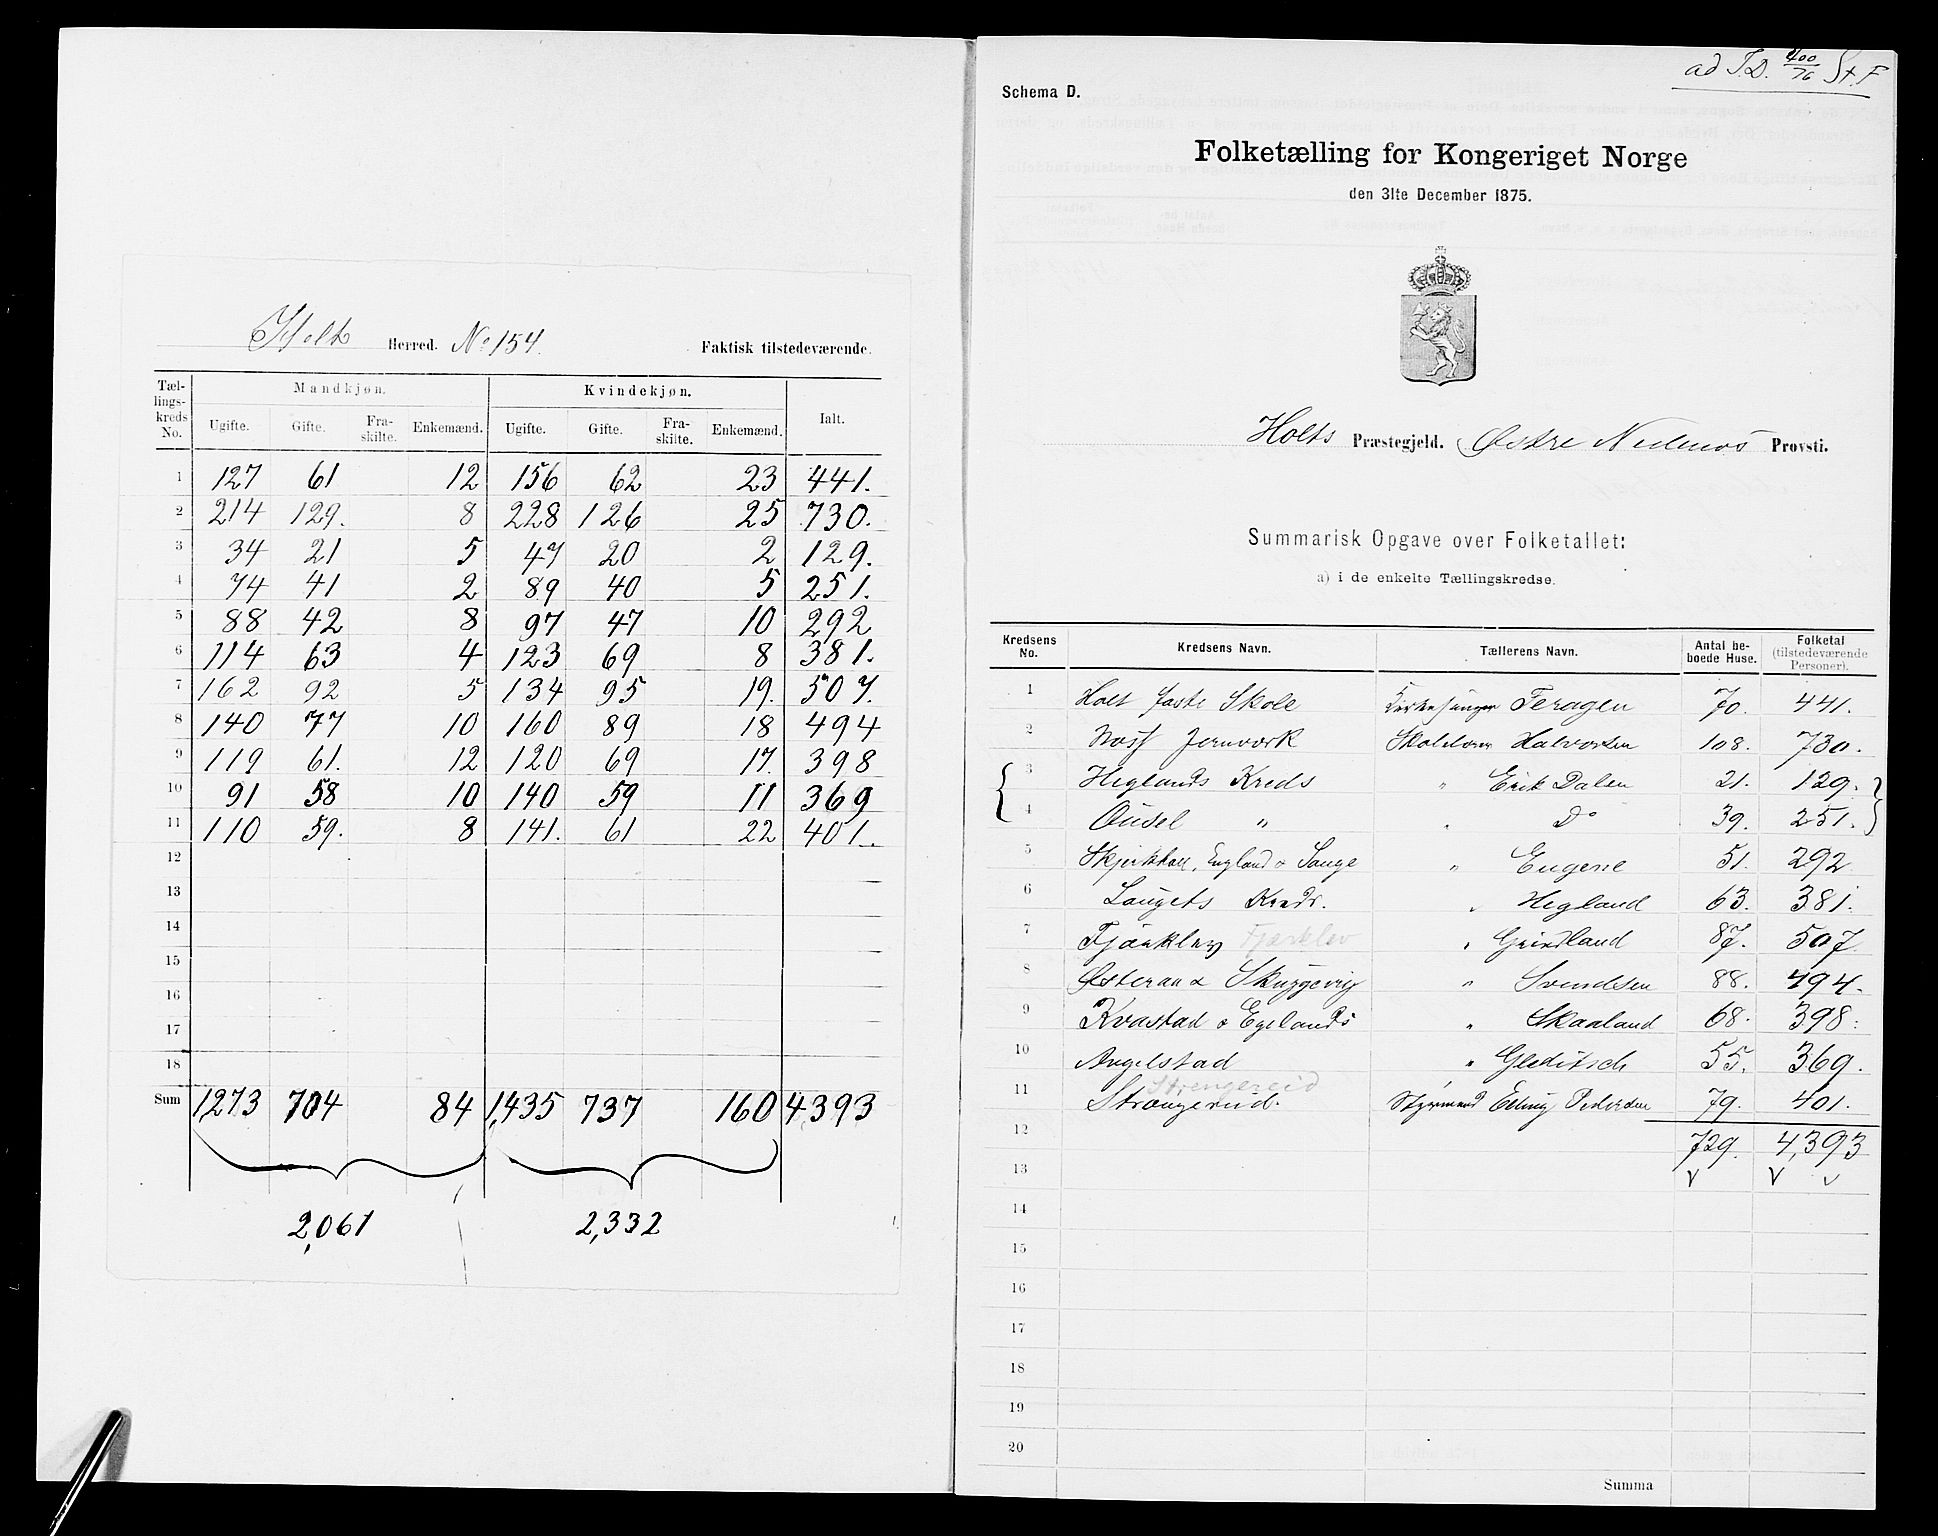 Holt Herred. No 154. Faktisk tilstedeværende.
Tællingskreds No. Mandkjøn. Kvindekjøn. Ialt.
Ugifte. Gifte. Fraskilte. Enkemænd. Ugifte. Gifte. Fraskilte. Enkemænd.
1 127 61 12 156 62 23 441.
2 214 129. 8 228 126 25 730.
3 34 21 5 47 20 2 129.
4 74 41 2 89 40 5 251.
5 88 42 8 97 47 10 292
6 114 63 4 123 69 8 381.
7 162 92 5 134 95 19. 507.
8 140 77 10 160 89 18 494
9 119 61. 12 120 69 17. 398
10 91 58 10 140 59 11 369
11 110 59. 8 141. 61 22 401.
12
13
14
15
16
17
18
Sum 1273 704 84 1,435 737 160 4393
2,061 2,332
ad J.D. 400/76 St. F
Schema D.
Folketælling for Kongeriget Norge
den 31te December 1875.
Holts Præstegjeld. Østre Nedenæs Provsti.
Summarisk Opgave over Folketallet:
a) i de enkelte Tællingskredse.
Kredsens No. Kredsens Navn. Tællerens Navn. Antal beboede Huse. Folketal (tilstedeværende Personer).
1 Holt faste Skole Kirkesanger Feragen 70. 441.
2 Næss Jernværk Skolelærer Halvorsen 108. 730.
3 Heglands Kreds " Erik Dalen 21. 129.
4 Ousel " " Do 39. 251.
5 England & Sange " Eugene 51. 292
6 Songets Kreds. " Hegland 63. 381.
7 Fjærklev " Grindland 87. 507.
8 Østeraa & Skuggevig " Svendsen 88. 494.
9 Kvastad & Egelands " Skaaland 68. 398.
10 Angelstad " Gleditsch 55. 369.
11 Strængereid. Strengereid Styrmand Erling Pedersen 79. 401.
12 729. 4,393
13
14
15
16
17
18
19
20
Summa